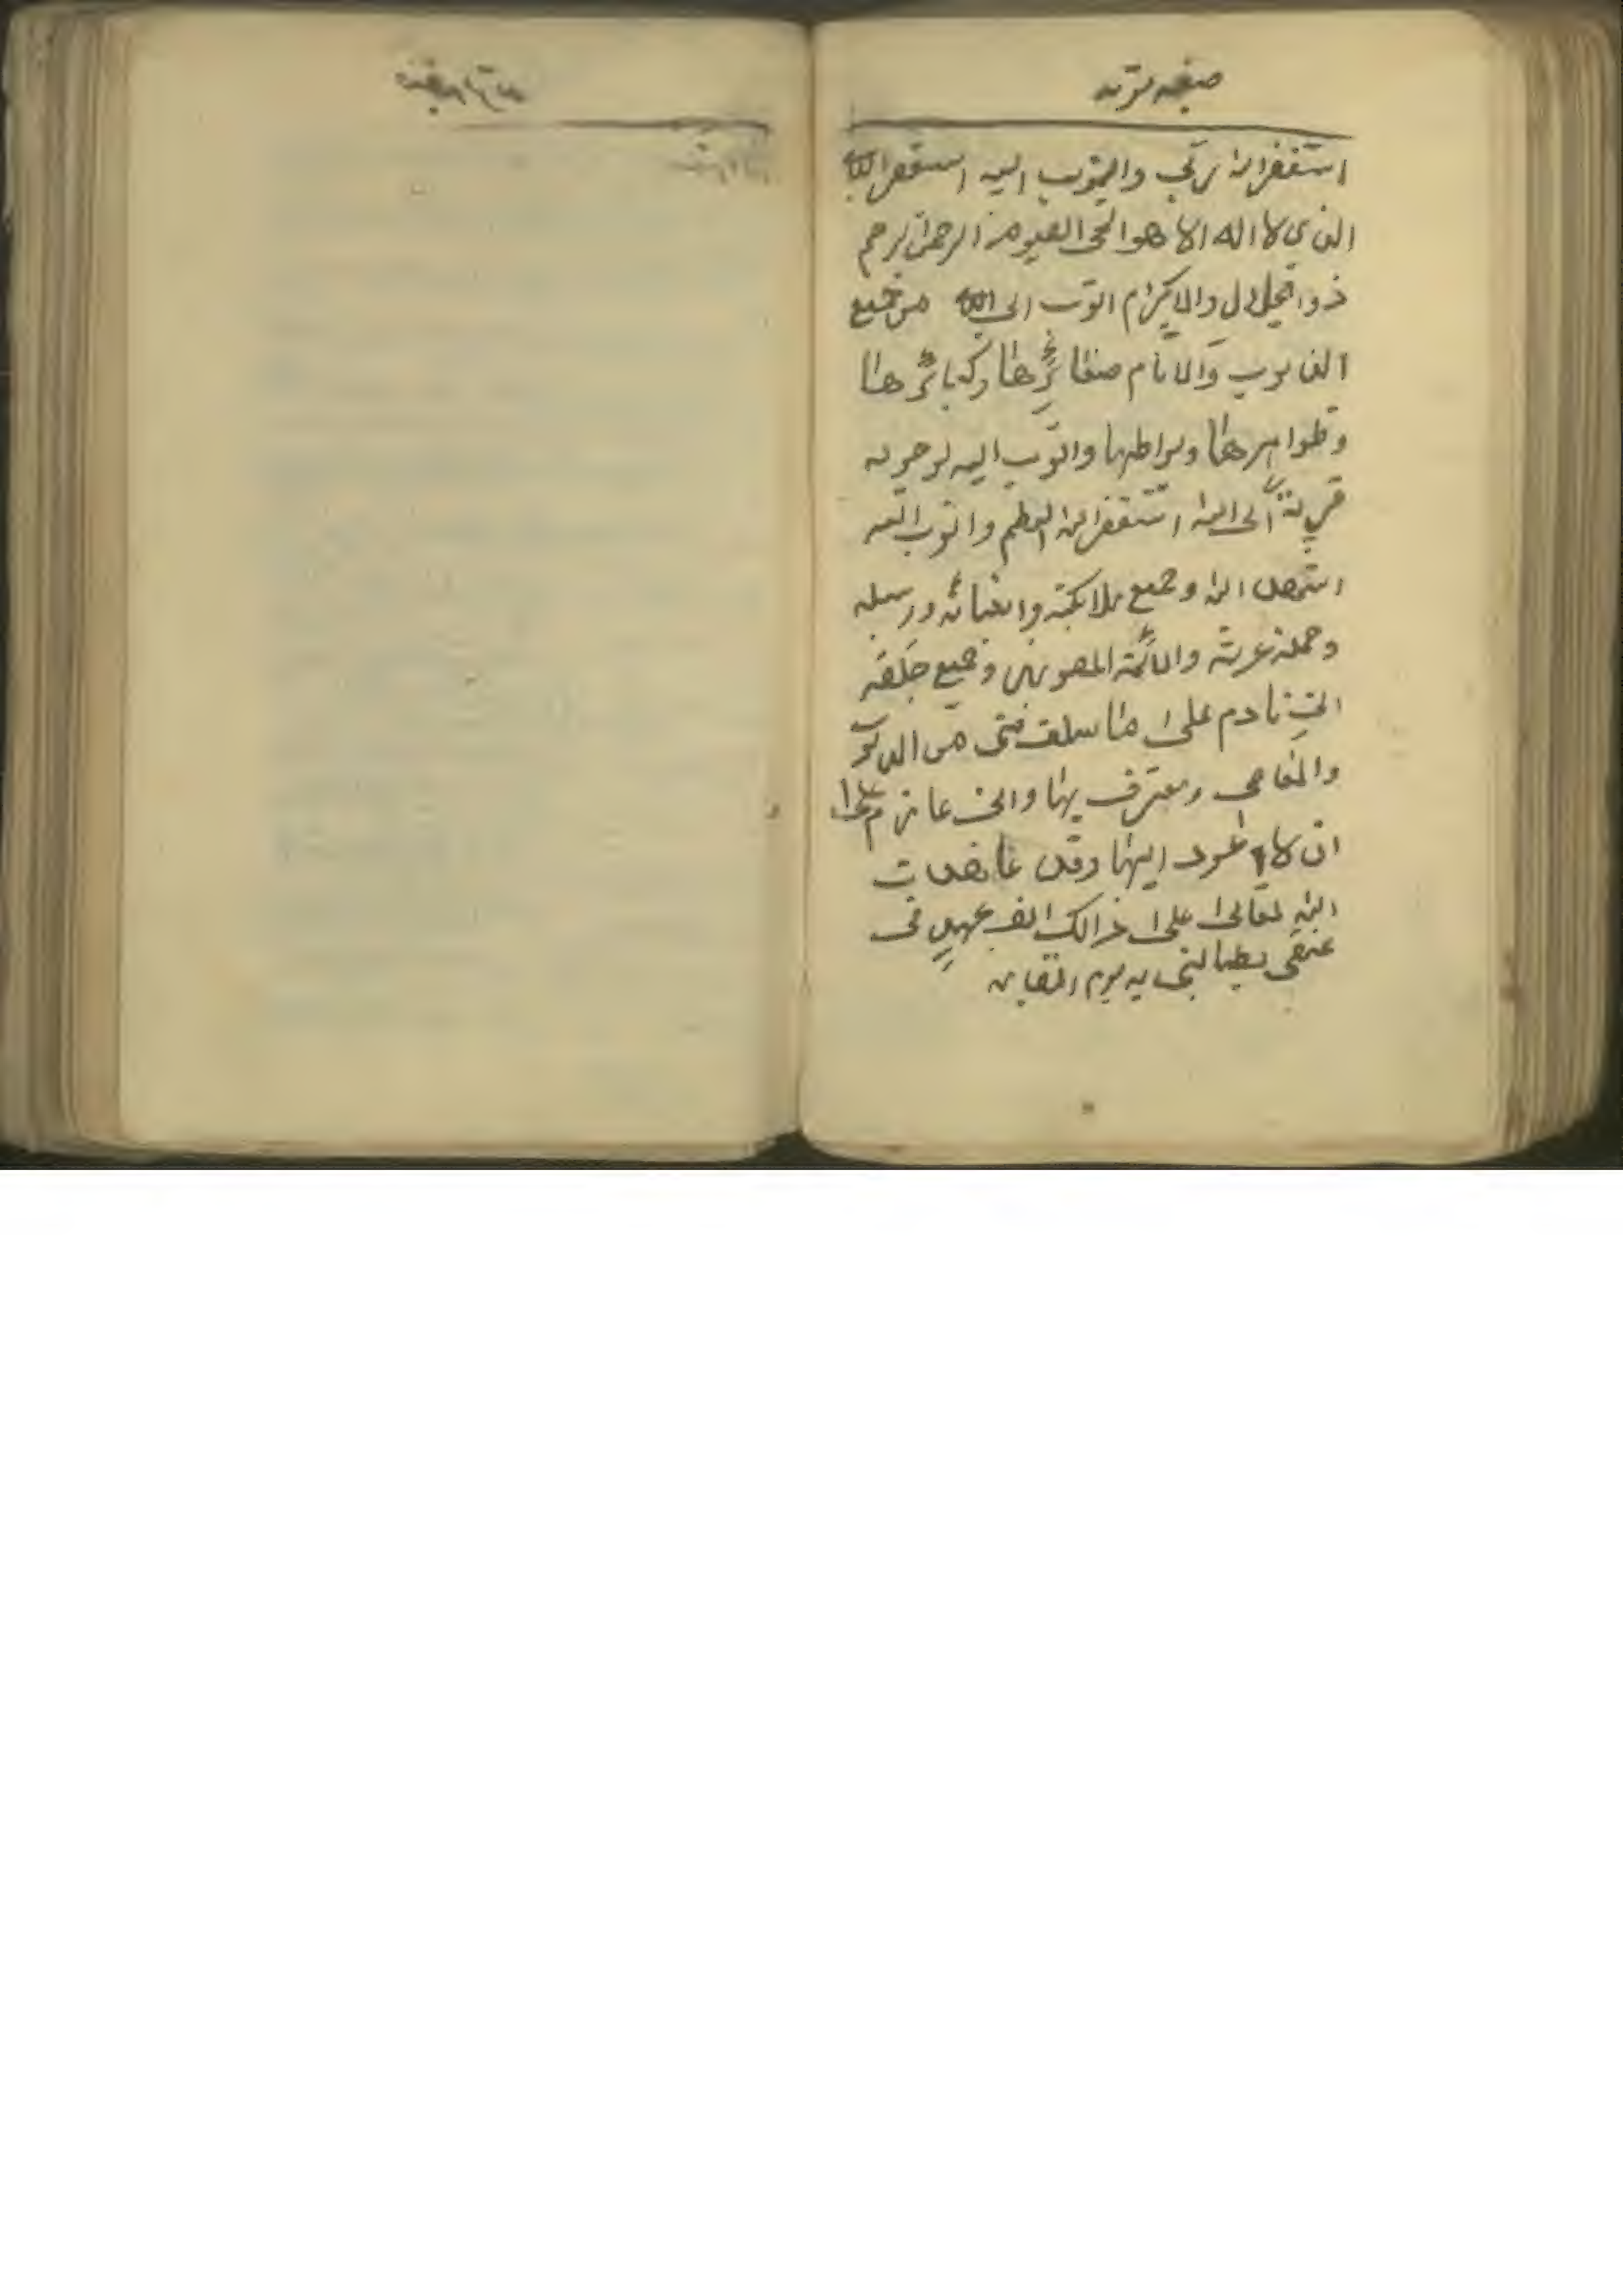 صيغه توبه
استغفر الله ربي واتوب اليه استغفر الله
الذي لا اله الا هو الحي القيوم الرحمن الرحيم
ذو الجلال والاكرام اتوب الى الله من جميع
الذنوب والاثام صغائرها وكبائرها
وظواهرها وبواطنها واتوب اليه توبة
قربة الى الله استغفر الله العظيم واتوب اليه
اشهد الله وجميع ملائكته وانبيائه ورسله
وحملة عرشه والائمة المعصومين وجميع خلقه
اني نادم على ما سلف مني من الذنوب
والمعاصي ومعترف بها واني عازم على
ان لا اعود اليها وقد عاهدت
الله تعالى على ذالك الف عهد في
عنقي يطالبني به يوم القيامه